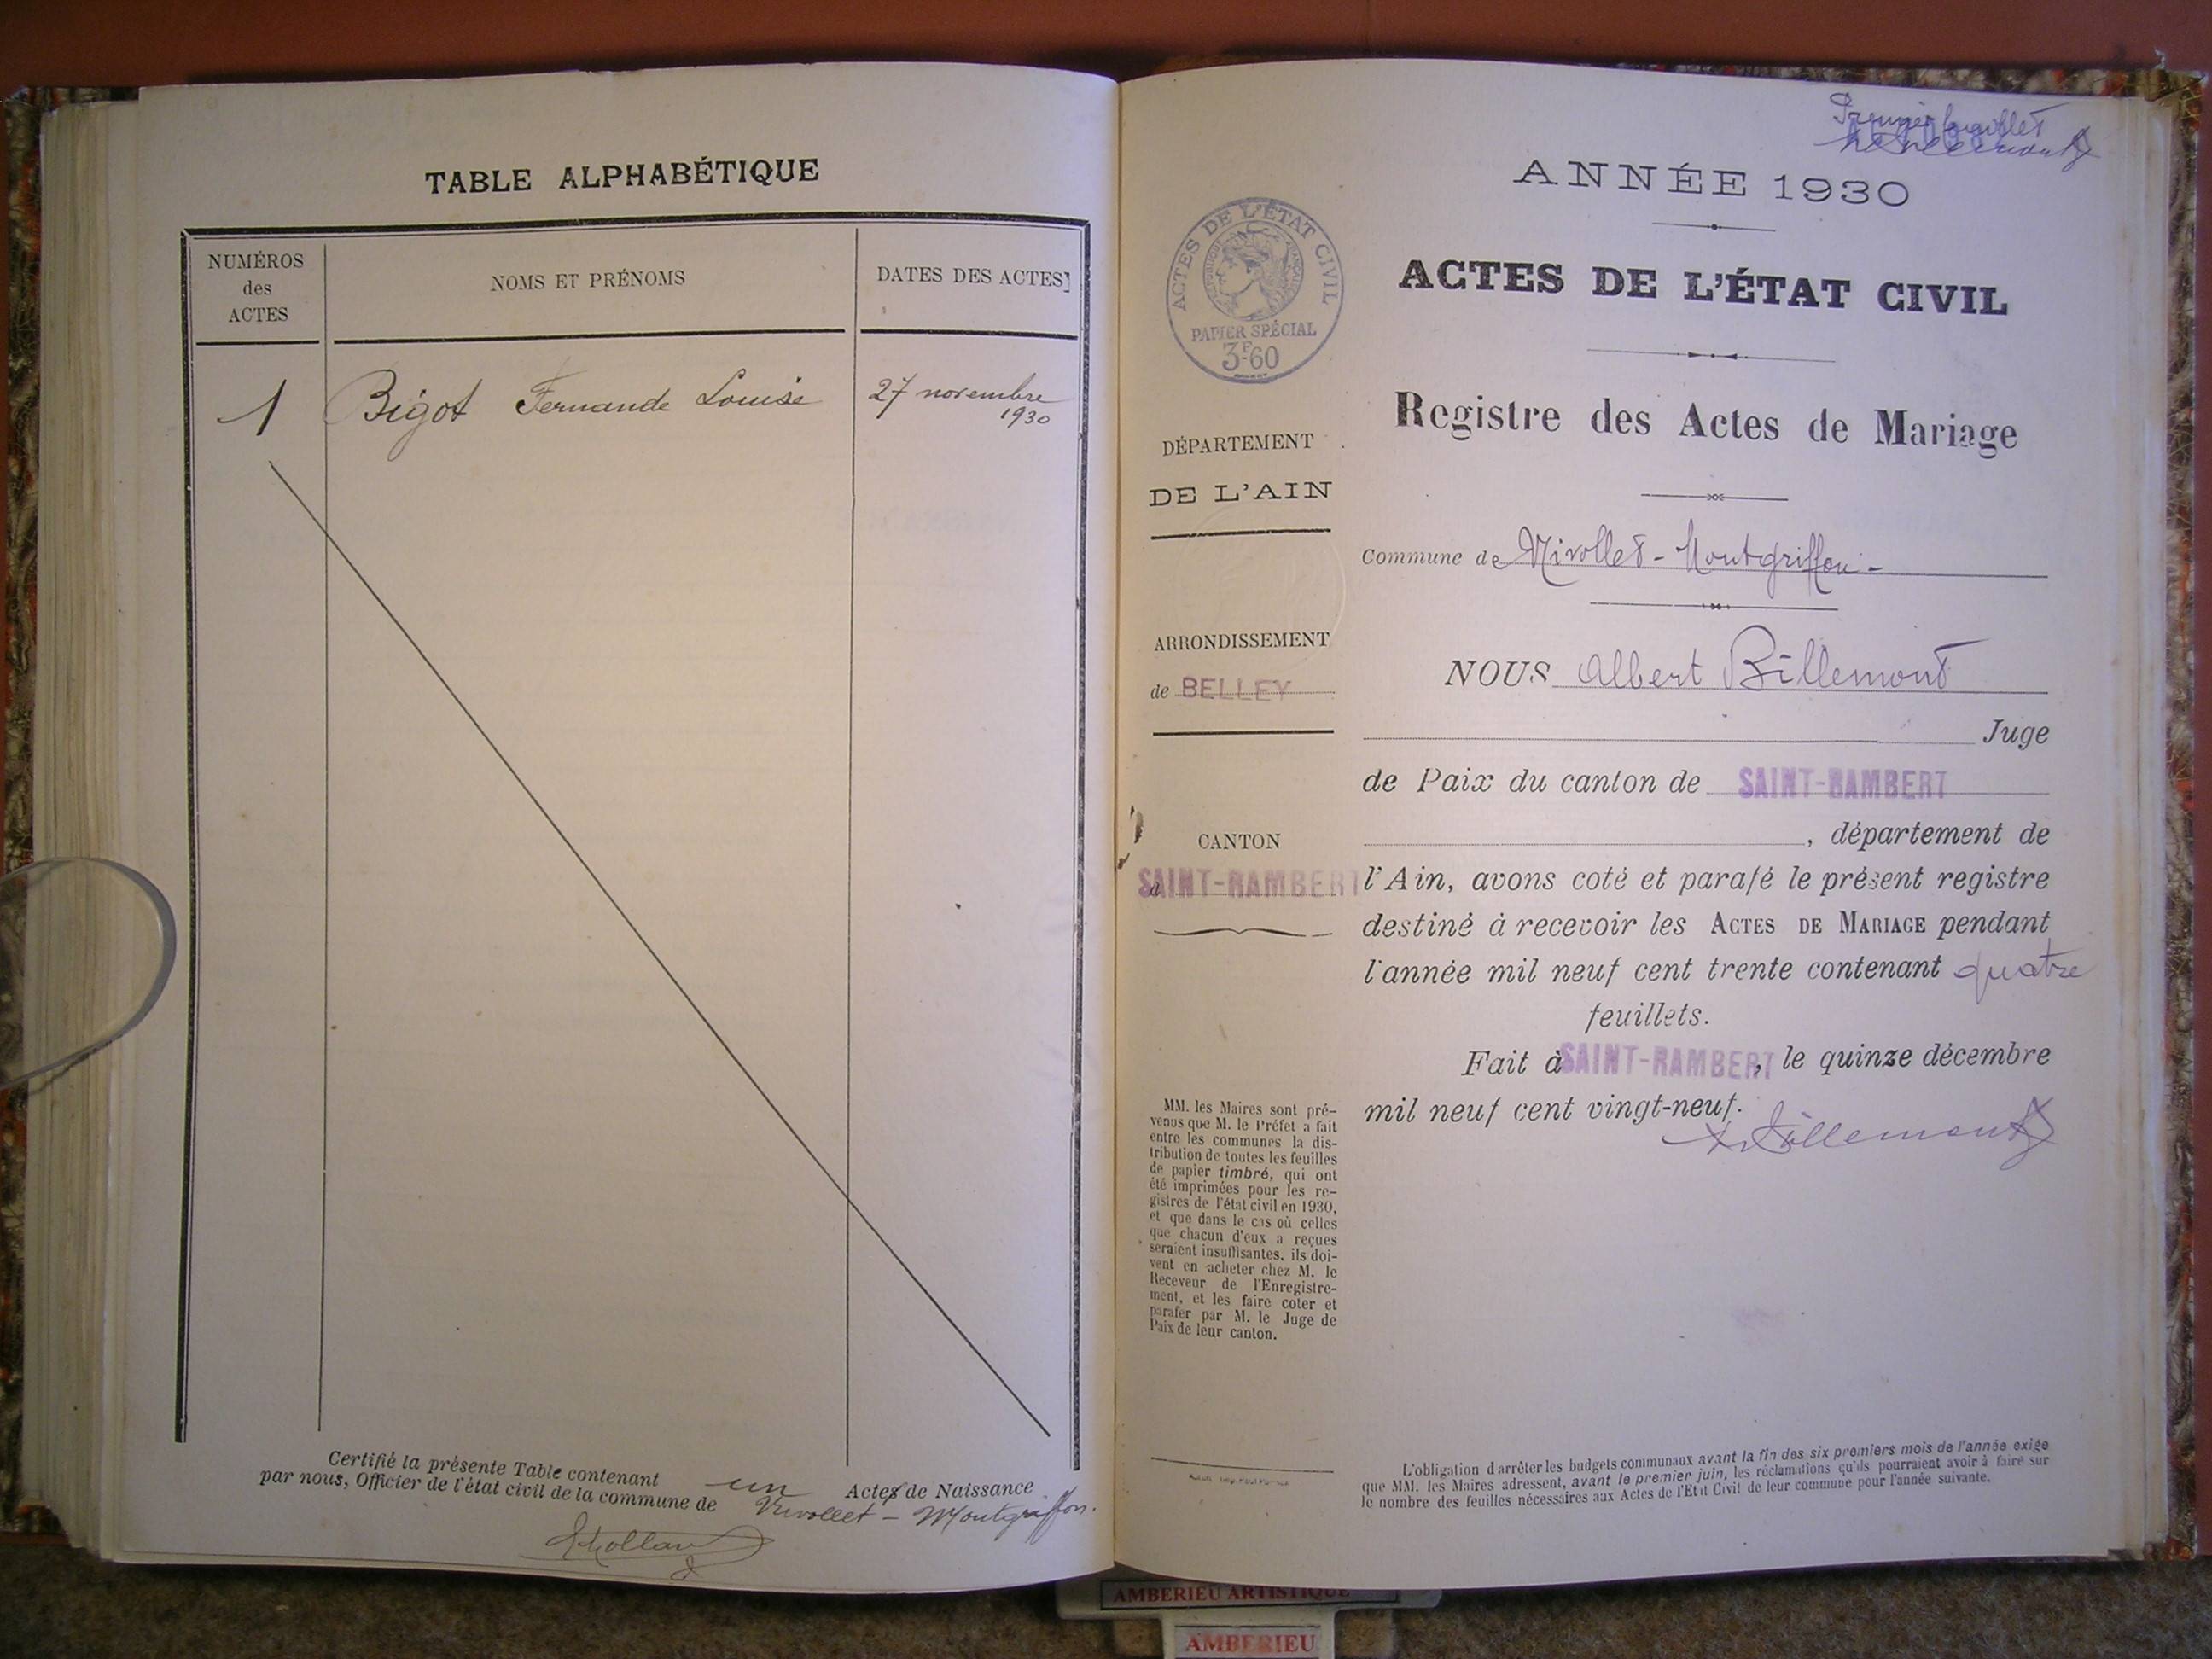 TABLE ALPHABÉTIQUE
NUMÉROS
des
ACTES
NOMS ET PRÉNOMS
DATES DES ACTES
1 Bigot Fernande Louise 27 novembre
1930
Certifié la présente Table contenant un Actes de Naissance
par nous, Officier de l'état civil de la commune de Nivollet - Montgriffon.
Premier feuillet
ANNÉE 1930
ACTES DE L'ÉTAT CIVIL
RÉPUBLIQUE FRANÇAISE
PAPIER SPÉCIAL
3F60
ACTES DE L'ÉTAT CIVIL
Registre des Actes de Mariage
DÉPARTEMENT
DE L'AIN
Commune de Nivollet - Montgriffon -
ARRONDISSEMENT
de BELLEY
NOUS Albert Billemont
Juge
de Paix du canton de SAINT-RAMBERT
CANTON
d SAINT-RAMBERT
, département de
l'Ain, avons coté et parafé le présent registre
destiné à recevoir les ACTES DE MARIAGE pendant
l'année mil neuf cent trente contenant quatre
feuillets.
Fait à SAINT-RAMBERT, le quinze décembre
mil neuf cent vingt-neuf.
Billemont
MM. les Maires sont pré-
venus que M. le Préfet a fait
entre les communes la dis-
tribution de toutes les feuilles
de papier timbré, qui ont
été imprimées pour les re-
gistres de l'état civil en 1930,
et que dans le cas où celles
que chacun d'eux a reçues
seraient insuffisantes, ils doi-
vent en acheter chez M. le
Receveur de l'Enregistre-
ment, et les faire coter et
parafer par M. le Juge de
Paix de leur canton.
L'obligation d'arrêter les budgets communaux avant la fin des six premiers mois de l'année exige
que MM. les Maires adressent, avant le premier juin, les réclamations qu'ils pourraient avoir à faire sur
le nombre des feuilles nécessaires aux Actes de l'Etat Civil de leur commune pour l'année suivante.
AMBERIEU ARTISTIQUE
AMBERIEU